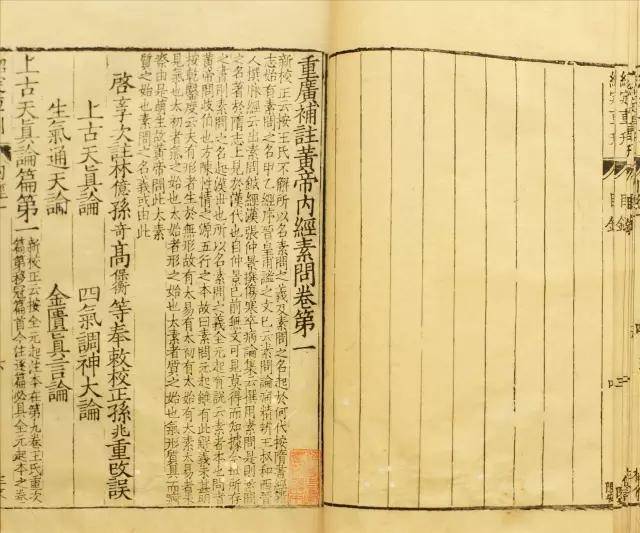 目錄
重廣補註黃帝內經素問卷第一
新校正云按王氏不解所以名素問之義及素問之名起於何代按隋書經籍
志始有素問之名甲乙經序晉皇甫謐之文已云素問論病精辨王叔和西晉
人撰脉經云出素問鍼經漢張仲景撰傷寒卒病論集云撰用素問是則素問
之名著於隋志上見於漢代也自仲景已前無文可見莫得而知據今世所存
之書則素問之名起漢世也所以名素問之義全元起有說云素者本也問者
黃帝問歧伯也方陳性情之源五行之本故曰素問元起雖有此解義未甚明
按乾鑿度云夫有形者生於無形故有太易有太初有太始有太素太易者未
見氣也太初者氣之始也太始者形之始也太素者質之始也氣形質具而痾
瘵由是萌生故黃帝問此太素
質之始也素問之名義或由此
啓玄子次註林億孫奇高保衡等奉敕校正孫兆重改誤
上古天眞論 四氣調神大論
生氣通天論 金匱眞言論
上古天眞論篇第一 新校正云按全元起注本在第九卷王氏重次
篇第移冠篇首今注逐篇必具全元起本之卷